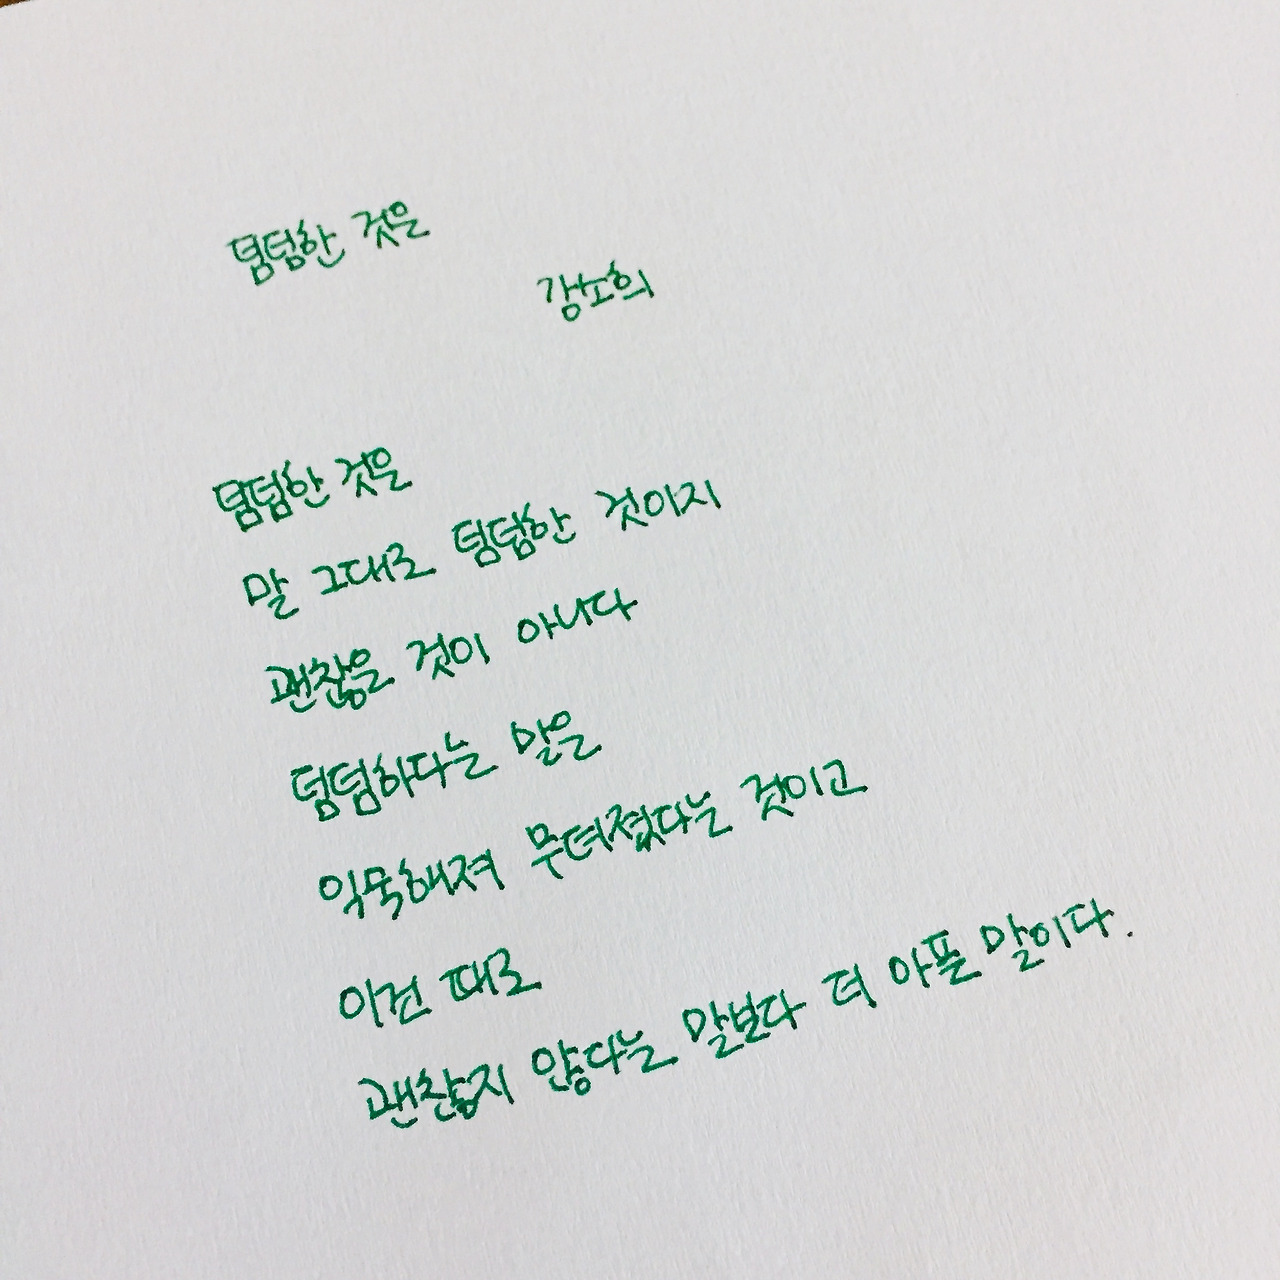 덤덤한 것은
강소희
덤덤한 것은
말 그대로 덤덤한 것이지
괜찮은 것이 아니다
덤덤하다는 말은
익숙해져 무뎌졌다는 것이고
이건 때로
괜찮지 않다는 말보다 더 아플 말이다.